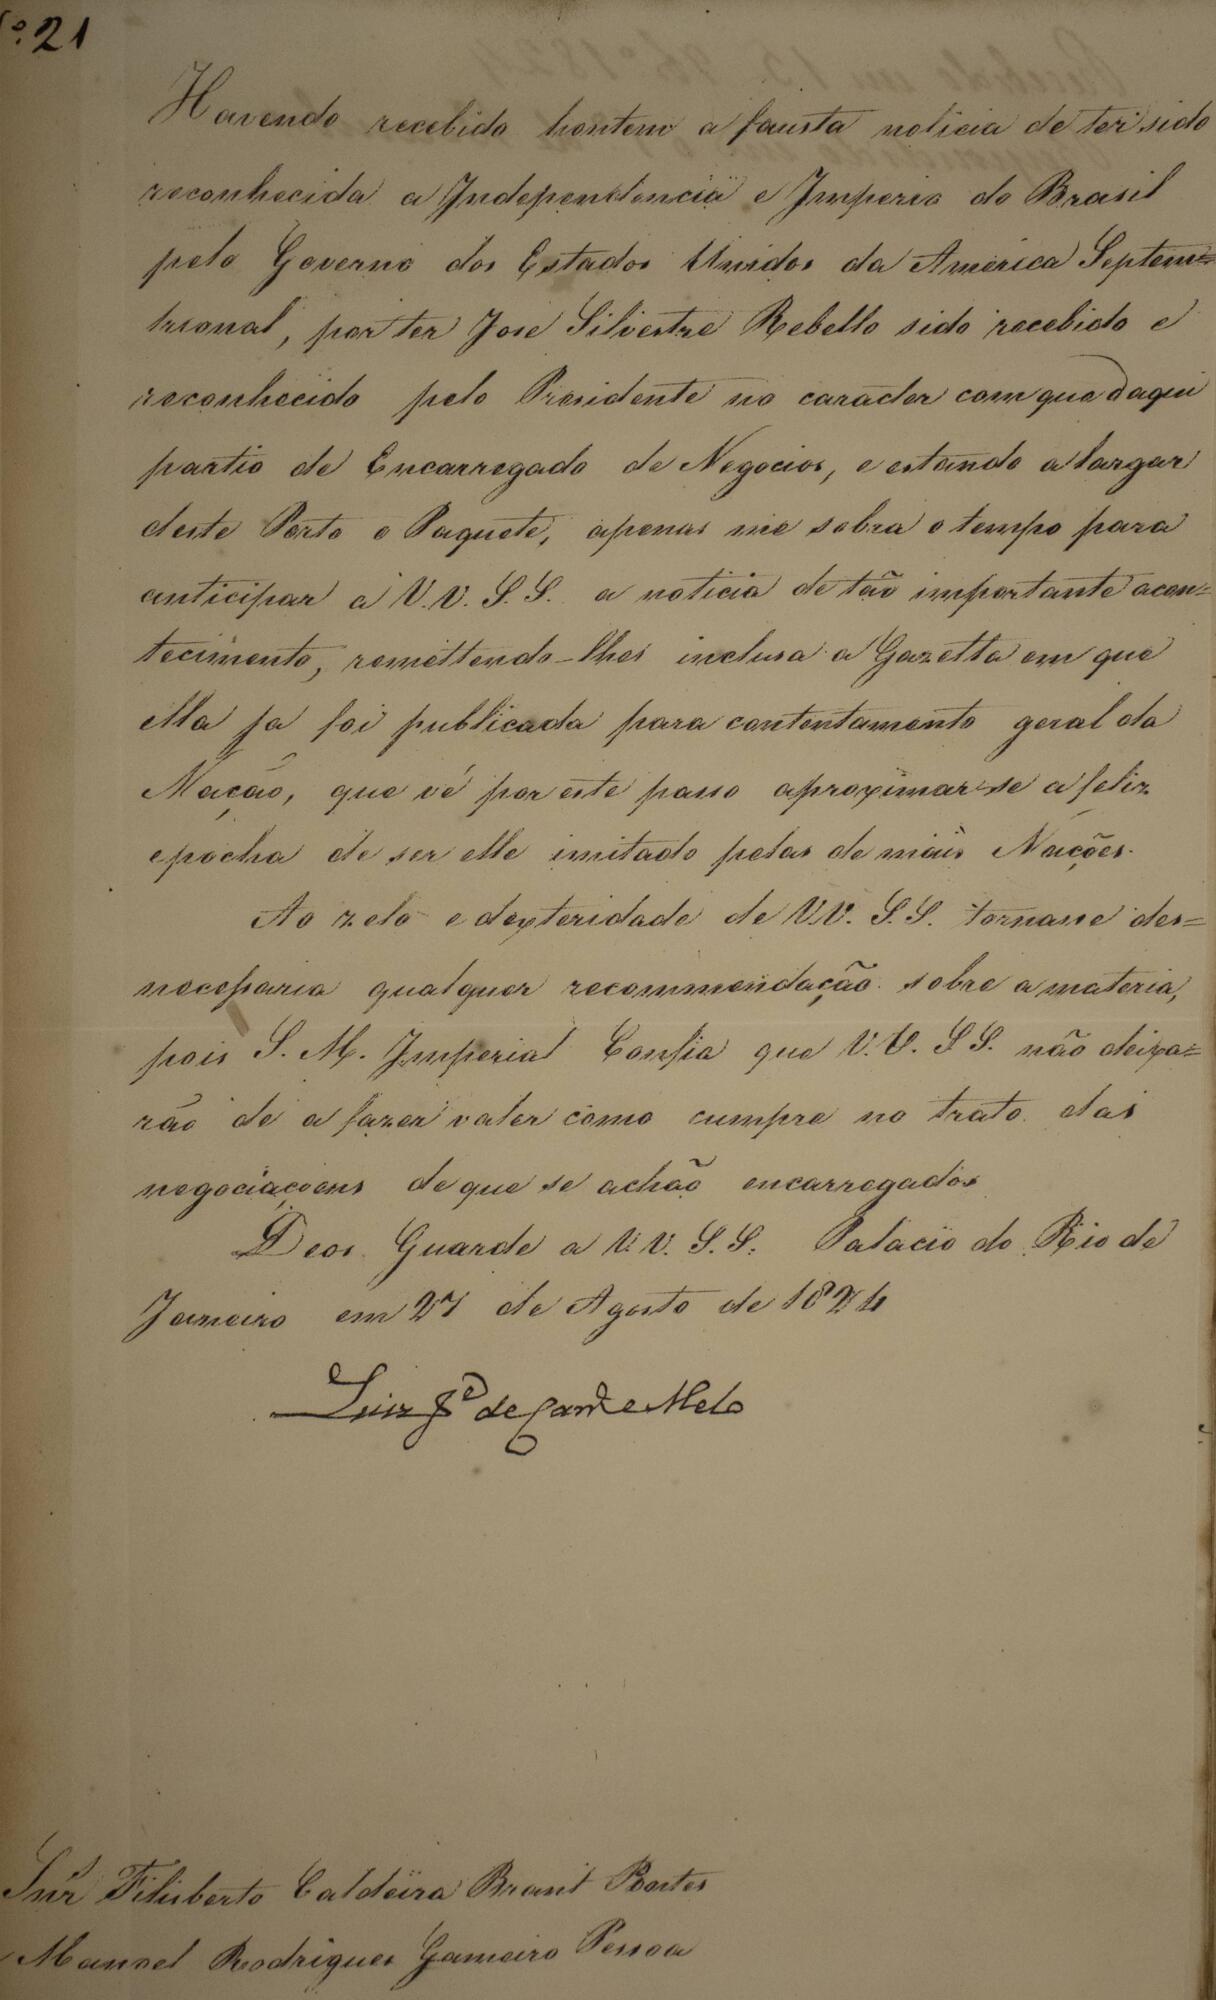 º. 21
Havendo recebido hontem a fausta noticia de ter sido
reconhecida a Independencia e Imperio do Brasil
pelo Governo dos Estados Unidos da América Septem=
trional, por ter Jose Silvestre Rebello sido recebido e
reconhecido pelo Presidente no caracter com que daqui
partio de Encarregado de Negocios, e estando a largar
deste Porto o Paquete, apenas me sobra o tempo para
anticipar á V.V. S.S. a noticia de tão importante acon=
tecimento, remettendo-lhes inclusa a Gazetta em que
ella ja foi publicada para contentamento geral da
Nação, que vê por este passo aproximar-se a feliz
epocha de ser elle imitado pelas de mais Nações.
Ao zelo e dexteridade de V.V. S.S. tornasse des=
necessaria qualquer recommendação sobre a materia,
pois S. M. Imperial Confia que V.V. S.S. não deixa=
rão de a fazer valer como cumpre no trato das
negociaçoens de que se achão encarregados
Deos Guarde a V.V. S.S. Palacio do Rio de
Janeiro em 27 de Agosto de 1824
Luiz Jé de Carvº e Melo
Snr Filisberto Caldeira Brant Pontes
Manoel Rodrigues Gameiro Pessoa